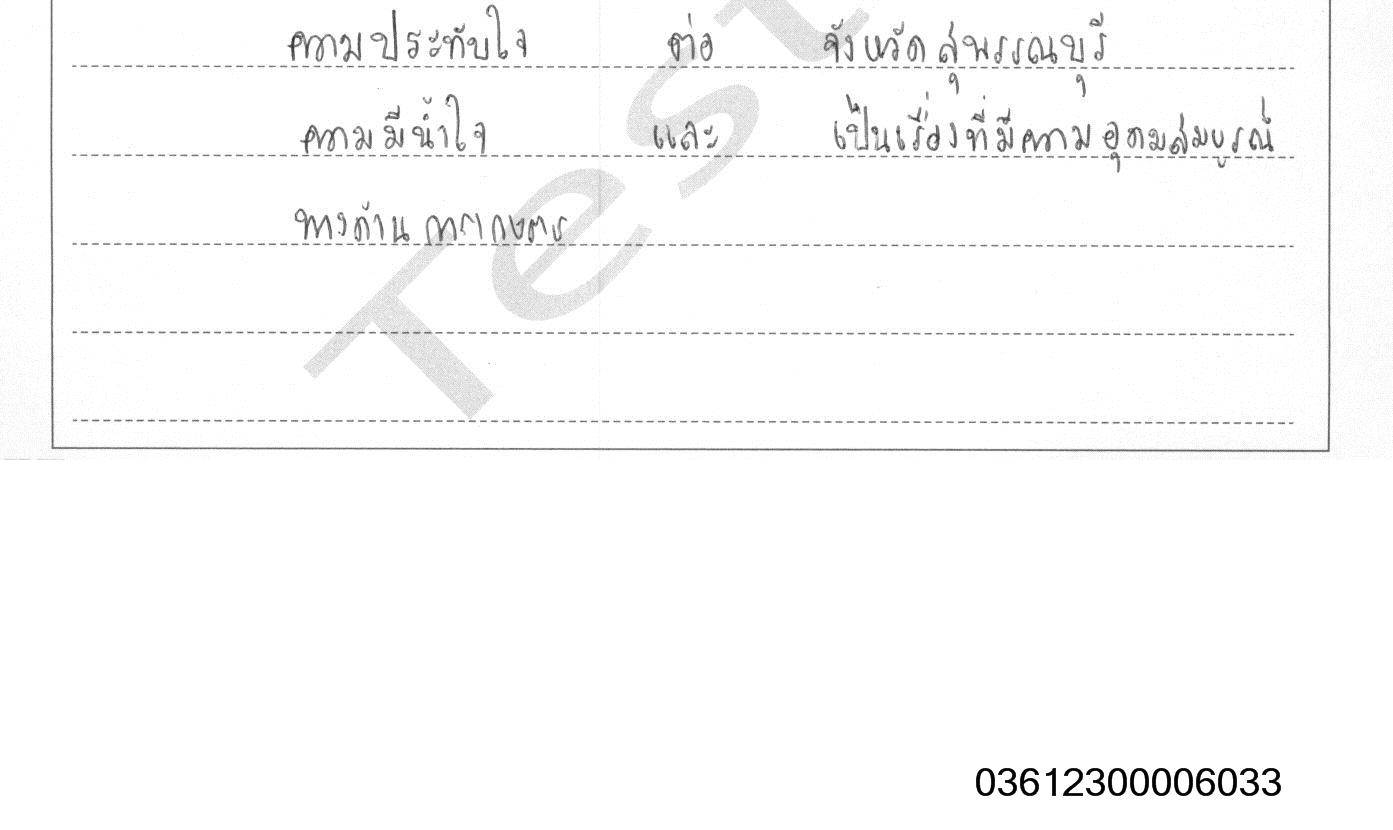 ความประทับใจ ต่อ จังหวัดสุพรรณบุรี
ความมีน้ำใจ และ เป็นเรื่องที่มีความอุดมสมบูรณ์
ทางด้าน การเกษตร
Test
03612300006033